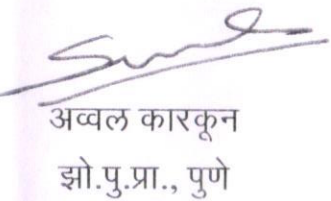 अव्वल कारकून
झो.पु.प्रा., पुणे